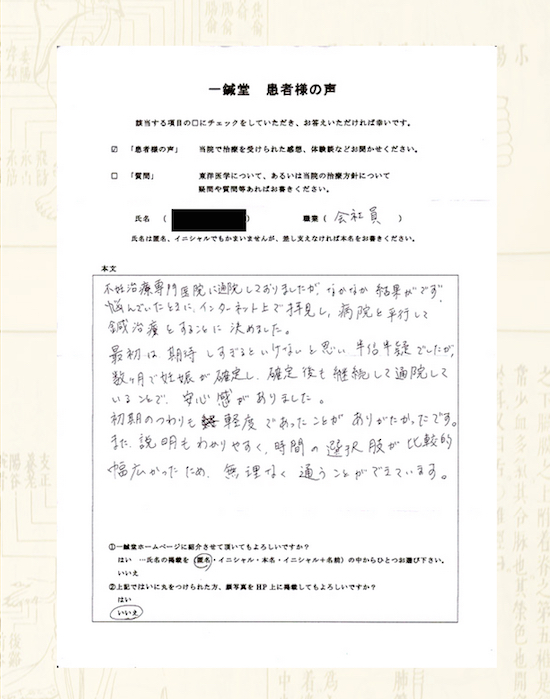 一鍼堂 患者様の声
該当する項目の□にチェックをしていただき、お答えいただければ幸いです。
☑ 「患者様の声」 当院で治療を受けられた感想、体験談などお聞かせください。
□ 「質問」 東洋医学について、あるいは当院の治療方針について
疑問や質問等あればお書きください。
氏名 ( ) 職業 ( 会社員 )
氏名は匿名、イニシャルでもかまいませんが、差し支えなければ本名をお書きください。
本文
不妊治療専門医院に通院しておりましたが、なかなか結果がでず、
悩んでいたときに、インターネット上で拝見し、病院と平行して
鍼治療をすることに決めました。
最初は期待しすぎるといけないと思い半信半疑でしたが、
数ヶ月で妊娠が確定し、確定後も継続して通院して
いることで、安心感がありました。
初期のつわりも軽度であったことがありがたかったです。
また、説明もわかりやすく、時間の選択肢が比較的
幅広かったため、無理なく通うことができています。
①一鍼堂ホームページに紹介させて頂いてもよろしいですか？
はい …氏名の掲載を（匿名・イニシャル・本名・イニシャル＋名前）の中からひとつお選び下さい。
いいえ
②上記ではいに丸をつけられた方、顔写真をHP上に掲載してもよろしいですか？
はい
いいえ